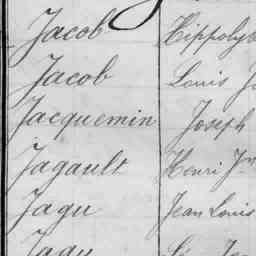 Jacob Hippolyt
Jacob Louis
Jacquemin Joseph
Jagault Henri Jn
Jagu Jean Louis
Jagu